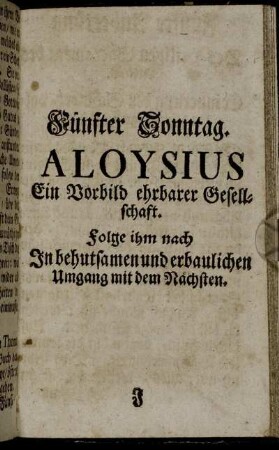 Fünfter Sonntag.
ALOYSIUS
Ein Vorbild ehrbarer Gesell-
schaft.
Folge ihm nach
In behutsamen und erbaulichen
Umgang mit dem Nächsten.
J